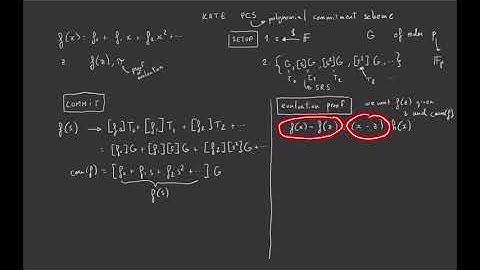 KATE PCS → polynomial commitment scheme
f(x) = f₀ + f₁ x + f₂ x² + ⋯
z f(z), π
proof evaluation
SETUP
1. s ← $ F
G of order p
F_p
2. { G, [s]G, [s²]G, [s³]G, ⋯ }
T₀ T₁ T₂ T₃
SRS
COMMIT
f(s) → [f₀]T₀ + [f₁]T₁ + [f₂]T₂ + ⋯
= [f₀]G + [f₁][s]G + [f₂][s²]G + ⋯
com(f) = [f₀ + f₁ s + f₂ s² + ⋯] G
f(s)
evaluation proof
we want f(z) given
z and com(f)
f(x) - f(z) (x - z) h(x)